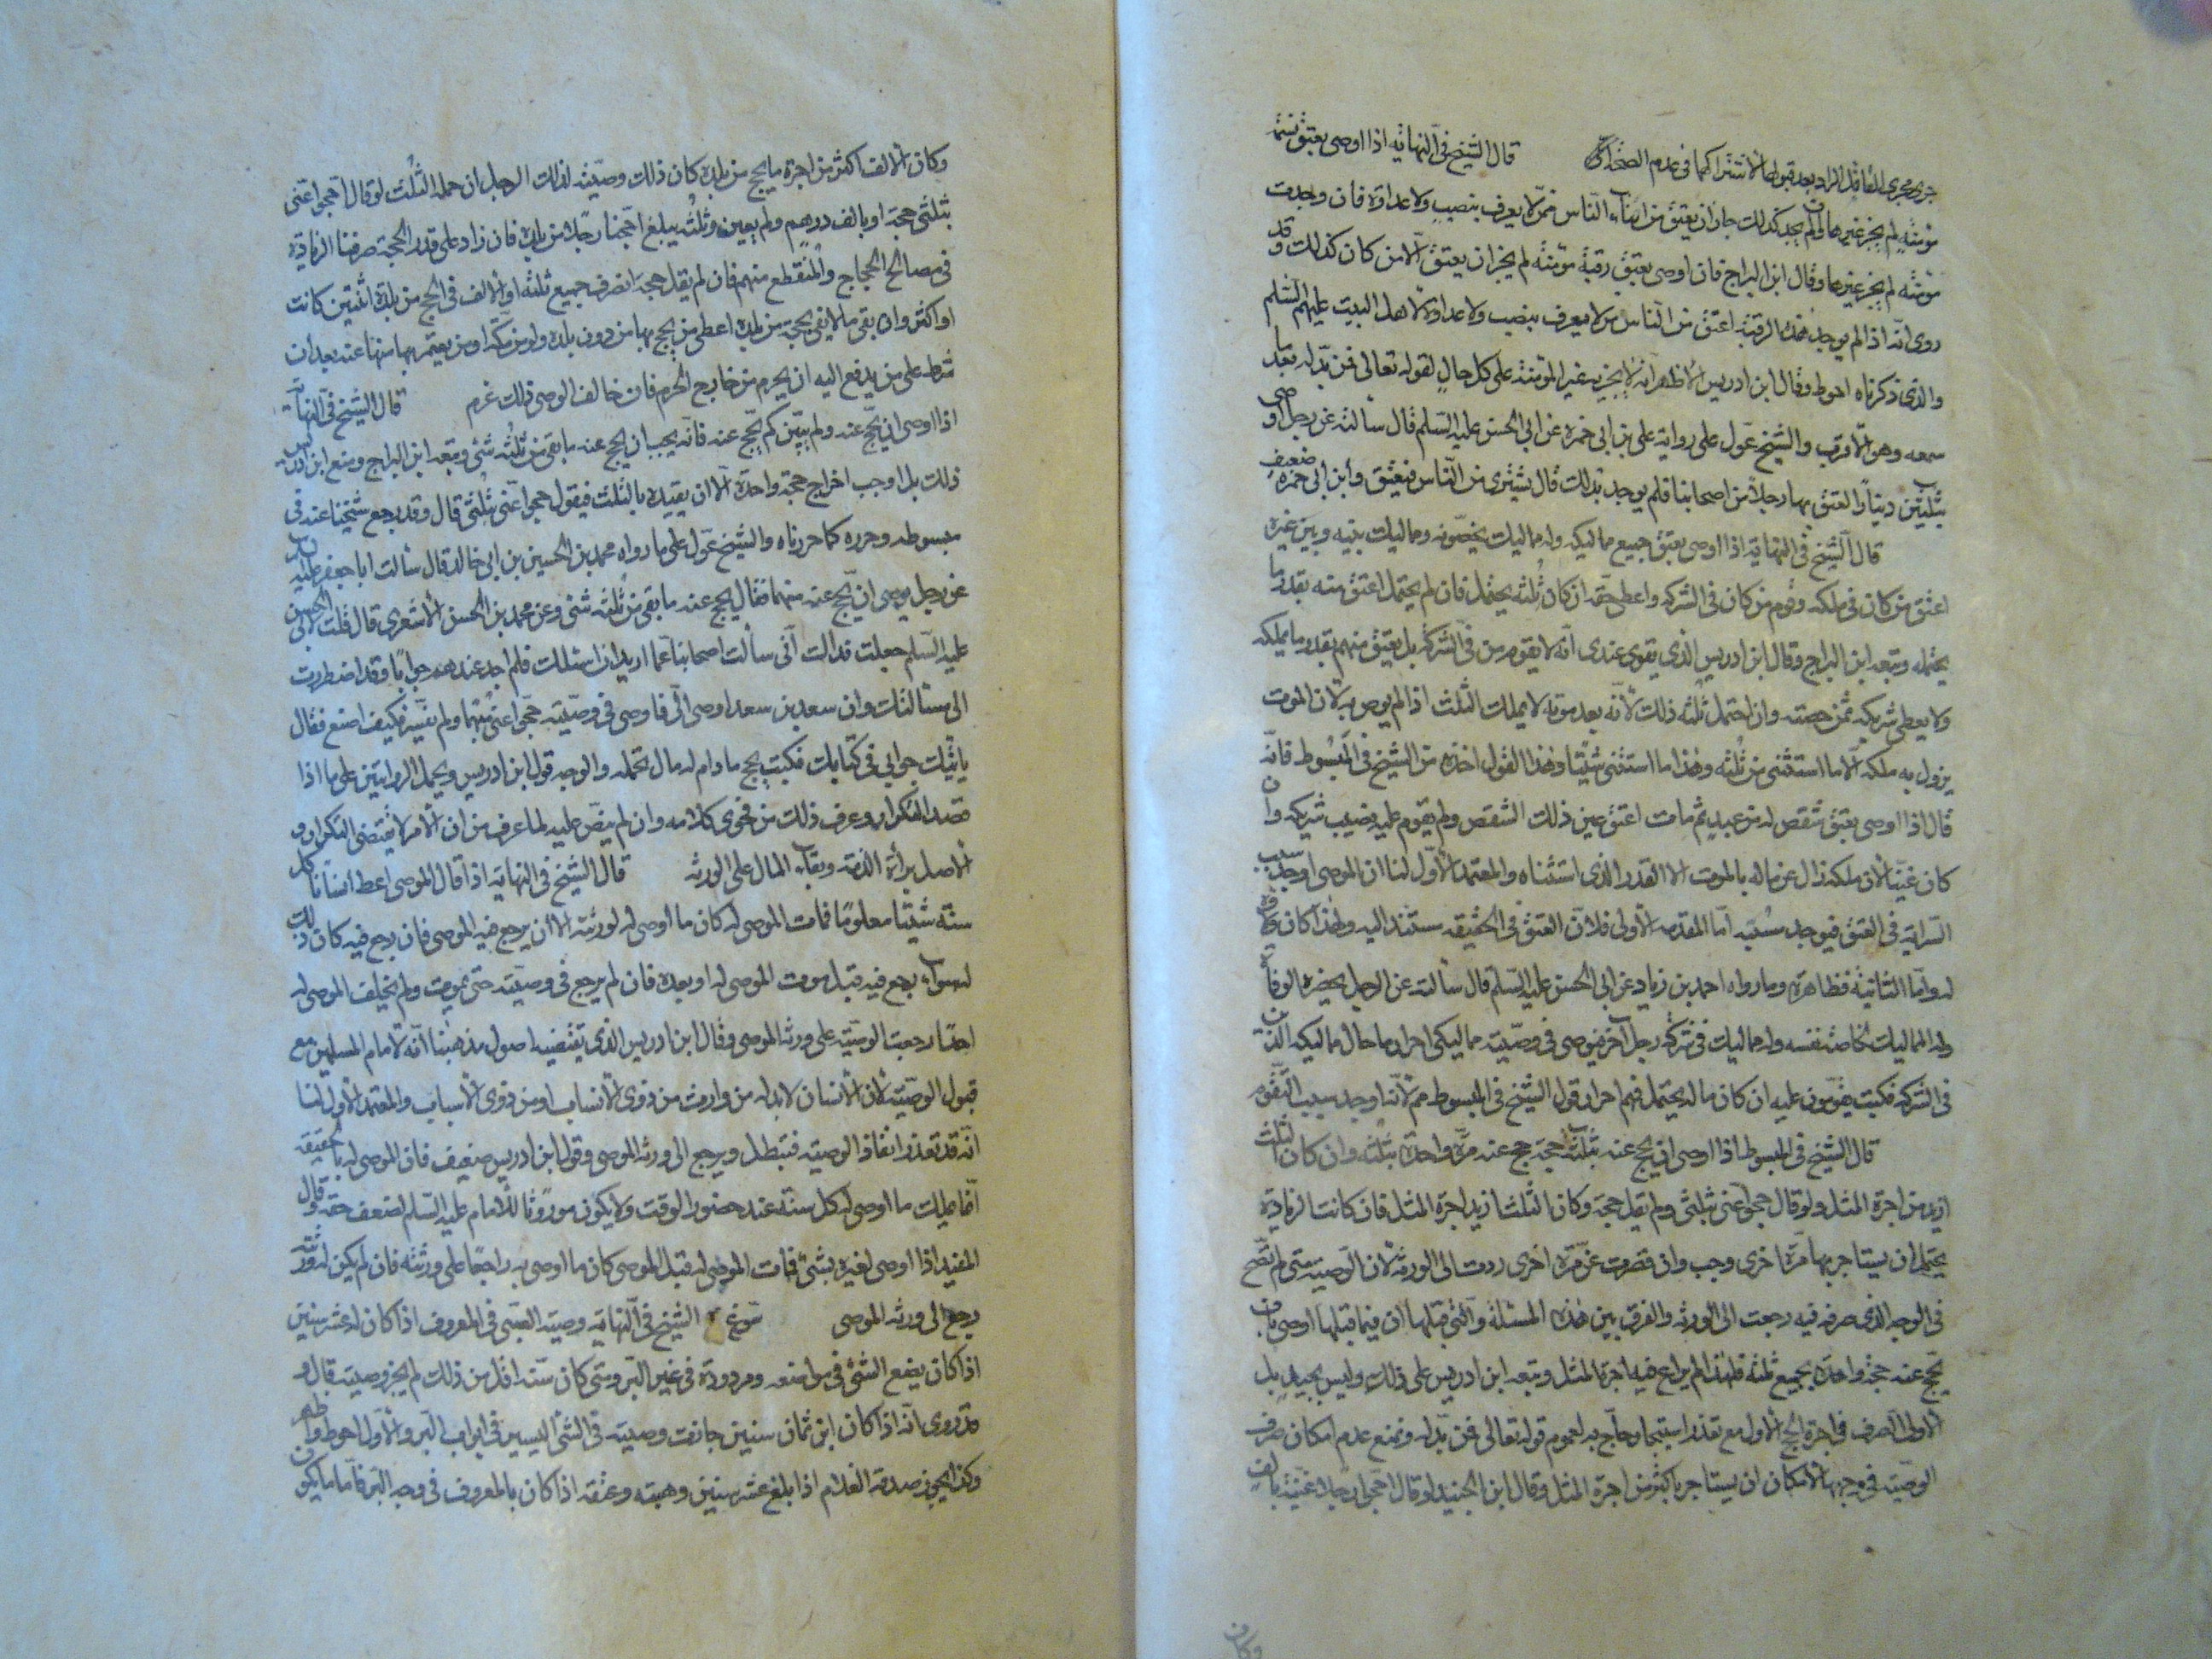 جرى مجرى الفاقد الراد بعد قبولها لاشتراكهما في عدم الصحة قال الشيخ في النهاية اذا اوصى بعتق نسمة
مؤمنة لم يجز غيرها فان لم يجد كذلك جاز ان يعتق من ابناء الناس ممن لا يعرف بنصب ولا عداوة فان وجدت
مؤمنة لم يجز غيرها وقال ابن البراج فان اوصى بعتق رقبة مؤمنة لم يجز ان يعتق الا من كان كذلك وقد
روى انه اذا لم يوجد هذه الرقبة اعتق من الناس من لا يعرف بنصب ولا عداوة لاهل البيت عليهم السلم
والذى ذكرناه احوط وقال ابن ادريس الاظهر انه لا يجزيه غير المؤمنة على كل حال لقوله تعالى فمن بدله بعد ما
سمعه وهو الاقرب والشيخ عول على رواية على بن ابى حمزة عن ابى الحسن عليه السلم قال سألته عن رجل اوصى
بثلثين دينارا لعتق بها رجلا من اصحابنا فلم يوجد بذلك قال يشترى من الناس فيعتق وابن ابى حمزة ضعيف
قال الشيخ في النهاية اذا اوصى بعتق جميع مماليكه وله مماليك يخصونه ومماليك بينه وبين غيره
اعتق من كان في ملكه وقوم من كان في الشركة واعطى حقه ان كان ثلثه يحتمل فان لم يحتمل اعتق منه بقدر ما
يحتمله وتبعه ابن البراج وقال ابن ادريس الذى يقوى عندى انه لا يقوم من في الشركة بل يعتق منهم بقدر ما يملكه
ولا يعطى شريكه ثمن حصته وان احتمل ثلثه ذلك لانه بعد موته لا يملك الثلث اذا لم يوص به لان الموت
يزول به ملكه الا ما استثنى من ثلثه وهذا ما استثنى شيئا وهذا القول اخذه من الشيخ في المبسوط فانه
قال اذا اوصى بعتق شقص له من عبد ثم مات اعتق عين ذلك الشقص ولم يقوم عليه نصيب شريكه وان
كان غنيا لان ملكه زال عن ماله بالموت الا القدر الذى استثناه والمعتمد الاول لنا ان الموصى اوجد سبب
السراية في العتق فيوجد مسببه اما المقدمة الاولى فلان العتق في الحقيقة مستند اليه ولهذا كان ولاؤه
له واما الثانية فظاهرة وما رواه احمد بن زياد عن ابى الحسن عليه السلم قال سألته عن الرجل يحضره الوفاة
وله المماليك لخاصة نفسه وله مماليك في شركة رجل اخر فيوصى في وصيته مماليكى احرار ما حال مماليكه الذين
في الشركة فكتب يقومون عليه ان كان ماله يحتمل فهم احرار وقول الشيخ في المبسوط مم لانه اوجد سبب التقويم
قال الشيخ في المبسوط اذا اوصى ان يحج عنه بثلثه حجة حج عنه مرة واحدة بثلثه وان كان الثلث
ازيد من اجرة المثل ولو قال حجوا عنى بثلثى ولم يقل حجة وكان الثلث ازيد اجرة المثل فان كانت الزيادة
يحتمل ان يستاجر بها مرة اخرى وجب وان قصرت عن مرة اخرى ردت الى الورثة لان الوصية متى لم تصح
في الوجه الذى صرفه فيه رجعت الى الورثة والفرق بين هذه المسئلة والتى قبلها ان فيما قبلها اوصى بان
يحج عنه حجة واحدة بجميع ثلثه فلهذا لم يراع فيه اجرة المثل وتبعه ابن ادريس على ذلك وليس بجيد بل
الاولى الصرف في اجرة الحج الاول مع تعذر استيجار حاج به لعموم قوله تعالى فمن بدله ونمنع عدم امكان صرف
الوصية في وجهها لامكان ان يستاجر باكثر من اجرة المثل وقال ابن الجنيد لو قال احجوا رجلا عنى بالف
وكان
وكان الالف اكثر من اجرة ما يحج من بلده كان ذلك وصية لذلك الرجل ان حمله الثلث لو قال احجوا عنى
بثلثى حجة او بالف درهم ولم يعين وثلثه يبلغ احججنا رجلا من بلده فان زاد على قدر الحجة صرفنا الزيادة
في مصالح الحجاج والمنقطع منهم فان لم يقل حجة انصرف جميع ثلثه او الالف في الحج من بلده اثنتين كانت
او اكثر وان بقى ما لا يفى بحجة من بلده اعطى من يحج بها من دون بلده ولو من مكة او من يعتمر بها منها عنه بعد ان
شرط على من يدفع اليه ان يحرم من خارج الحرم فان خالف الوصى ذلك غرم قال الشيخ في النهاية
اذا اوصى ان يحج عنه ولم يبين كم يحج عنه فانه يجب ان يحج عنه ما بقى من ثلثه شئ وتبعه ابن البراج ومنع ابن ادريس
ذلك بل اوجب اخراج حجة واحدة الا ان يقيده بالثلث فيقول حجوا عنى بثلثى قال وقد رجع شيخنا عنه في
مبسوطه وحرره كما حررناه والشيخ عول على ما رواه محمد بن الحسين بن ابى خالد قال سألت ابا جعفر عليه
عن رجل يوصى ان يحج عنه مبهما فقال يحج عنه ما بقى من ثلثه شئ وعن محمد بن الحسن الاشعرى قال قلت لابى الحسن
عليه السلم جعلت فداك انى سألت اصحابنا عما اريد ان اسئلك فلم اجد عندهم جوابا وقد اضطررت
الى مسألتك وان سعد بن سعد اوصى الى فاوصى في وصيته حجوا عنى مبهما ولم يفسر فكيف اصنع فقال
ياتيك جوابى في كتابك فكتب يحج ما دام له مال يحمله والوجه قول ابن ادريس ويحمل الروايتين على ما اذا
قصد التكرار وعرف ذلك من فحوى كلامه وان لم ينص عليه لما عرف من ان الامر لا يقتضى التكرار و
الاصل براءة الذمة وبقاء المال على الورثة قال الشيخ في النهاية اذا قال الموصى اعط انسانا كل
سنة شيئا معلوما فمات الموصى له كان ما اوصى له لورثته الا ان يرجع فيه الموصى فان رجع فيه كان ذلك
له سواء رجع فيه قبل موت الموصى له او بعده فان لم يرجع في وصيته حتى يموت ولم يخلف الموصى له
احدا رجعت الوصية على ورثة الموصى وقال ابن ادريس الذى يقتضيه اصول مذهبنا انه لامام المسلمين مع
قبول الوصية لان الانسان لابد له من وارث من ذوى الانساب او من ذوى الاسباب والمعتمد الاول لنا
انه قد تعذر انفاذ الوصية فتبطل ويرجع الى ورثة الموصى وقول ابن ادريس ضعيف فان الموصى له بالحقيقة
انما يملك ما اوصى له كل سنة عند حضور الوقت ولا يكون موروثا للامام عليه السلم لضعف حقه وقال
المفيد اذا اوصى لغيره بشئ فمات الموصى له قبل الموصى كان ما اوصى به راجعا على ورثته فان لم يكن له ورثة
رجع الى ورثة الموصى سوغ الشيخ في النهاية وصية الصبى في المعروف اذا كان له عشر سنين
اذا كان يضع الشئ في مواضعه ومردودة في غير البر ومتى كان سنه اقل من ذلك لم يجز وصيته قال و
قد روى انه اذا كان ابن ثمان سنين جازت وصيته في الشئ اليسير في ابواب البر والاول احوط واظهر
وكذا يجوز صدقة الغلام اذا بلغ عشر سنين وهبته وعتقه اذا كان بالمعروف في وجه البر فاما ما يكون